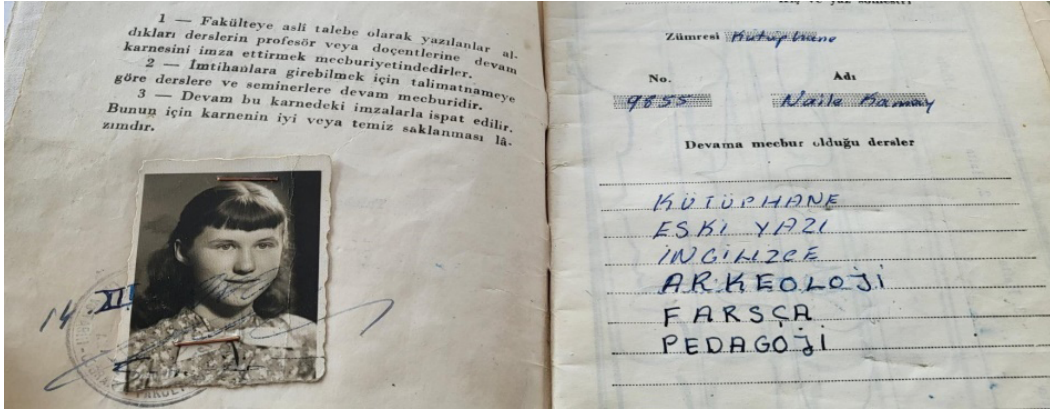 1 — Fakülteye asli talebe olarak yazılanlar al-
dıkları derslerin profesör veya doçentlerine devam
karnesini imza ettirmek mecburiyetindedirler.
2 — İmtihanlara girebilmek için talimatnameye
göre derslere ve seminerlere devam mecburidir.
3 — Devam bu karnedeki imzalarla ispat edilir.
Bunun için karnenin iyi veya temiz saklanması lâ-
zımdır.
14. XII
ve yaz sömestri
Zümresi Kütüphane
No. Adı
9855 Naile Kamay
Devama mecbur olduğu dersler
KÜTÜPHANE
ESKİ YAZI
İNGİLİZCE
ARKEOLOJİ
FARSÇA
PEDAGOJİ